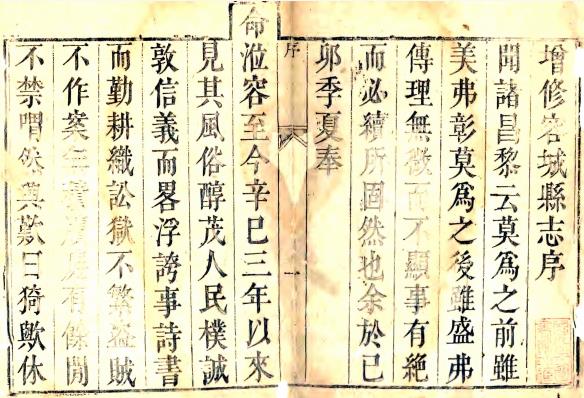 增修容城縣志序
聞諸昌黎云莫爲之前雖
美弗彰莫爲之後雖盛弗
傳理無微而不顯事有絕
而必續所固然也余於已
卯季夏奉
序
一
命涖容至今辛巳三年以來
見其風俗醇茂人民樸誠
敦信義而畧浮誇事詩書
而勤耕織訟獄不繁盜賊
不作案無積有餘閒
不禁喟然興歎曰猗歟休